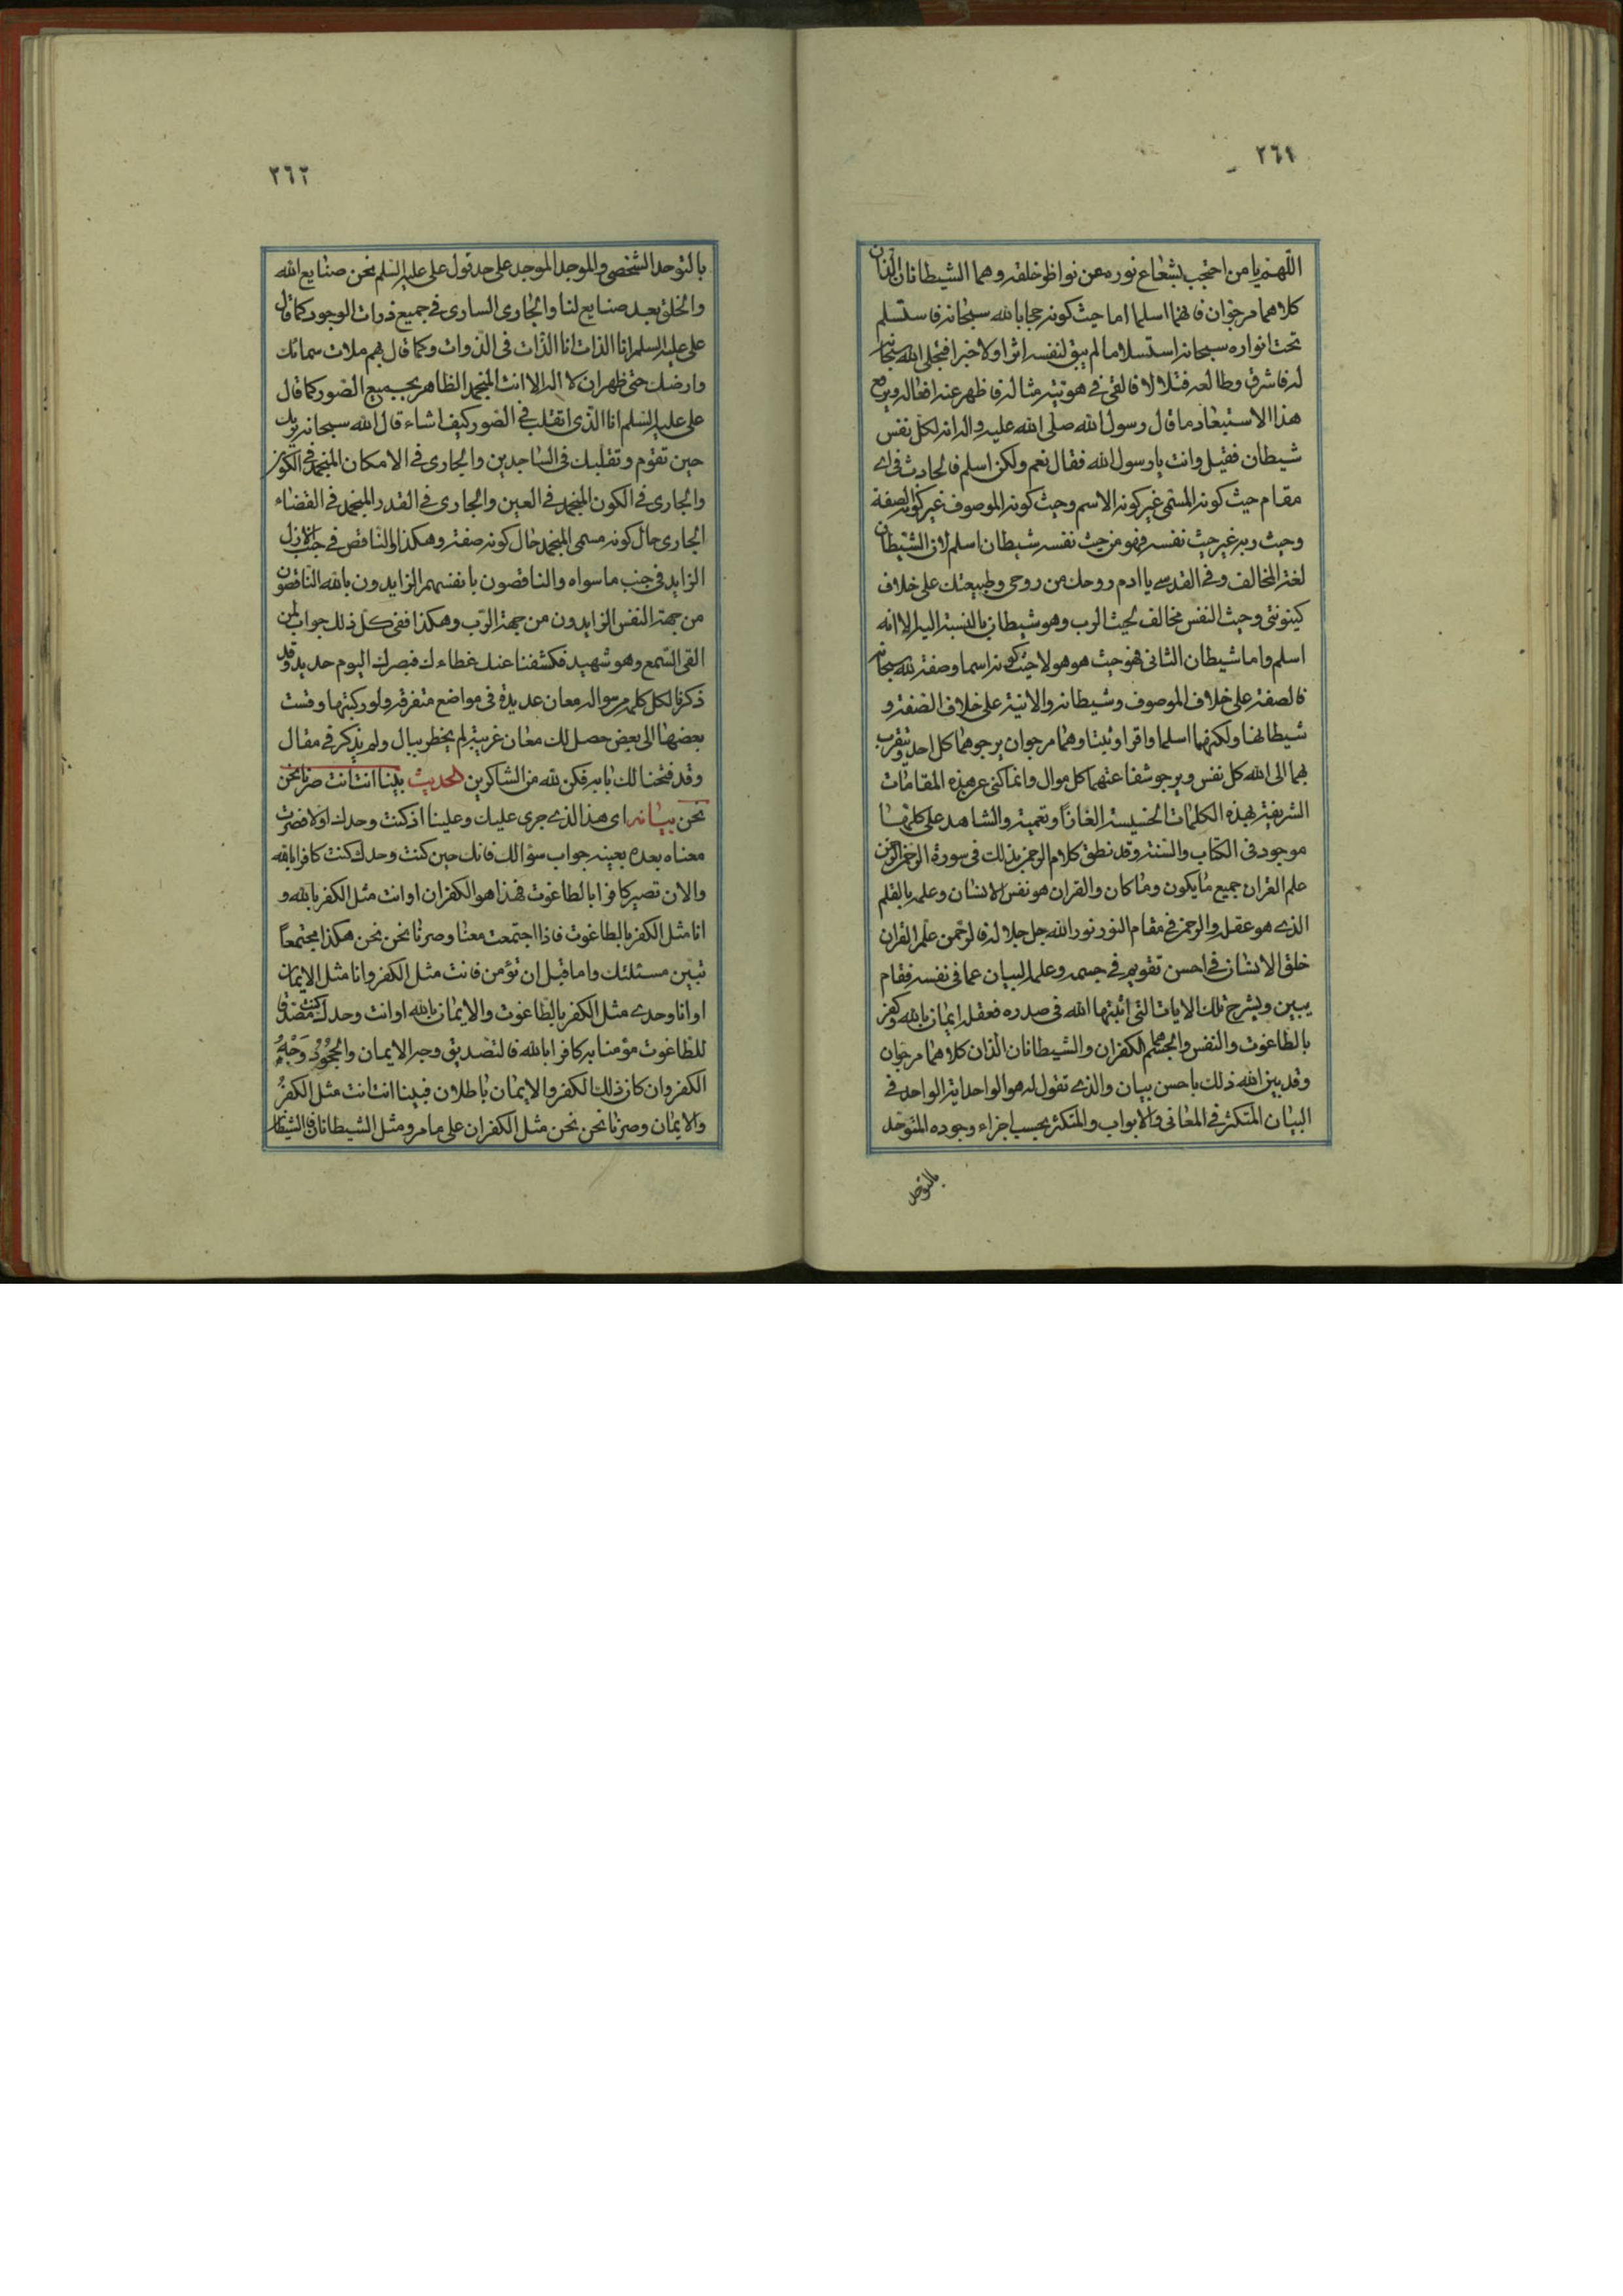 ٢٦١
اللهم يا من احتجب بشعاع نوره عن نواظر خلقه وهما الشيطانان اللذان
كلاهما مرجوان فانهما اسلما اما حيث كونه حجابا لله سبحانه فاستسلم
تحت انواره سبحانه استسلاما لم يبق لنفسه اثرا ولا خبرا فتجلى الله سبحانه
له فاشرق وطالعه فتلالا فالقى فى هويته مثاله فاظهر عنه افعاله ويرفع
هذا الاستبعاد ما قال رسول الله صلى الله عليه واله انه لكل نفس
شيطان فقيل وانت يا رسول الله فقال نعم ولكن اسلم فالحادث فى اى
مقام حيث كونه المسمى غير كونه الاسم وحيث كونه الموصوف غير كونه الصفة
وحيث ربه غير حيث نفسه فهو من حيث نفسه شيطان اسلم لان الشيطان
لغة المخالف وفى القدسى يا ادم روحك من روحى وطبيعتك على خلاف
كينونتى وحيث النفس مخالف لحيث الرب وهو شيطان بالنسبة اليه الا انه
اسلم واما شيطان الثانى فهو حيث هو هو لا حيث كونه اسما وصفة لله سبحانه
فالصفة على خلاف الموصوف وشيطانه والانية على خلاف الصفة و
شيطانها ولكنهما اسلما واقرا وثبتا وهما مرجوان يرجوهما كل احد ويتقرب
بهما الى الله كل نفس ويرجو شفاعتهما كل موال وانما كنى عن هذه المقامات
الشريفة بهذه الكلمات الخسيسة الغازا وتعمية والشاهد على كلها
موجود فى الكتاب والسنة وقد نطق كلام الرحمن بذلك فى سورة الرحمن الرحمن
علم القران جميع ما يكون وما كان والقران هو نفس الانسان وعلمه بالقلم
الذى هو عقله والرحمن فى مقام النور نور الله جل جلاله فالرحمن علم القران
خلق الانسان فى احسن تقويم فى جسمه وعلمه البيان عما فى نفسه فقام
يبين ويشرح تلك الايات التى اثبتها الله فى صدره فعقله ايمان بالله وكفر
بالطاغوت والنفس والجسم هما الكفران والشيطانان الذان كلاهما مرجوان
وقد بين الله ذلك باحسن بيان والذى تقول له هو الواحد اية الواحد فى
البيان المتكثر فى المعانى والابواب والمتكثر بحسب اجزاء وجوده المتوحد
بالتوحد
٢٦٢
بالتوحد الشخصى والموجد الموجد على حد قول على عليه السلم نحن صنايع الله
والخلق بعد صنايع لنا والجارى السارى فى جميع ذرات الوجود كما قال
على عليه السلم انا الذات انا الذات فى الذوات وكما قال بهم ملات سمائك
وارضك حتى ظهر ان لا اله الا انت المنجمد الظاهر بجميع الصور كما قال
على عليه السلم انا الذى اتقلب فى الصور كيف اشاء قال الله سبحانه يريك
حين تقوم وتقلبك فى الساجدين والجارى فى الامكان المنجمد فى الكون
والجارى فى الكون المنجمد فى العين والجارى فى القدر المنجمد فى القضاء
الجارى حال كونه مسمى المنجمد حال كونه صفة وهكذا والناقص فى جنب الازل
الزايد فى جنب ما سواه والناقصون بانفسهم الزايدون بالله الناقصون
من جهة النفس الزايدون من جهة الرب وهكذا ففى كل ذلك جواب لمن
القى السمع وهو شهيد فكشفنا عنك غطاءك فبصرك اليوم حديد وقد
ذكرنا لكل كلمه من سواله معان عديدة فى مواضع متفرقة ولو ركبتها وقست
بعضها الى بعض حصل لك معان غريبة لم يخطر ببال ولم يذكر فى مقال
وقد فتحنا لك بابه فكن لله من الشاكرين الحديث بينا انت انت صرنا نحن
نحن بيانه اى هذا الذى جرى عليك وعلينا اذ كنت وحدك اولا فصرت
معناه بعده بعينه جواب سؤالك فانك حين كنت وحدك كنت كافرا بالله
والان تصير كافرا بالطاغوت فهذا هو الكفران او انت مثل الكفر بالله و
انا مثل الكفر بالطاغوت فاذا اجتمعت معنا وصرنا نحن نحن هكذا مجتمعاً
تبين مسئلتك واما قبل ان تؤمن فانت مثل الكفر وانا مثل الايمان
او انا وحدى مثل الكفر بالطاغوت والايمان بالله او انت وحدك كنت مصدقا
للطاغوت مؤمنا به كافرا بالله فالتصديق وجه الايمان والجُحُودُ وَجْهُ
الكفر وان كان ذلك الكفر والايمان باطلان فبينا انت انت مثل الكفرُ
والايمان وصرنا نحن نحن مثل الكفران على ما مر ومثل الشيطانان فالشيطان